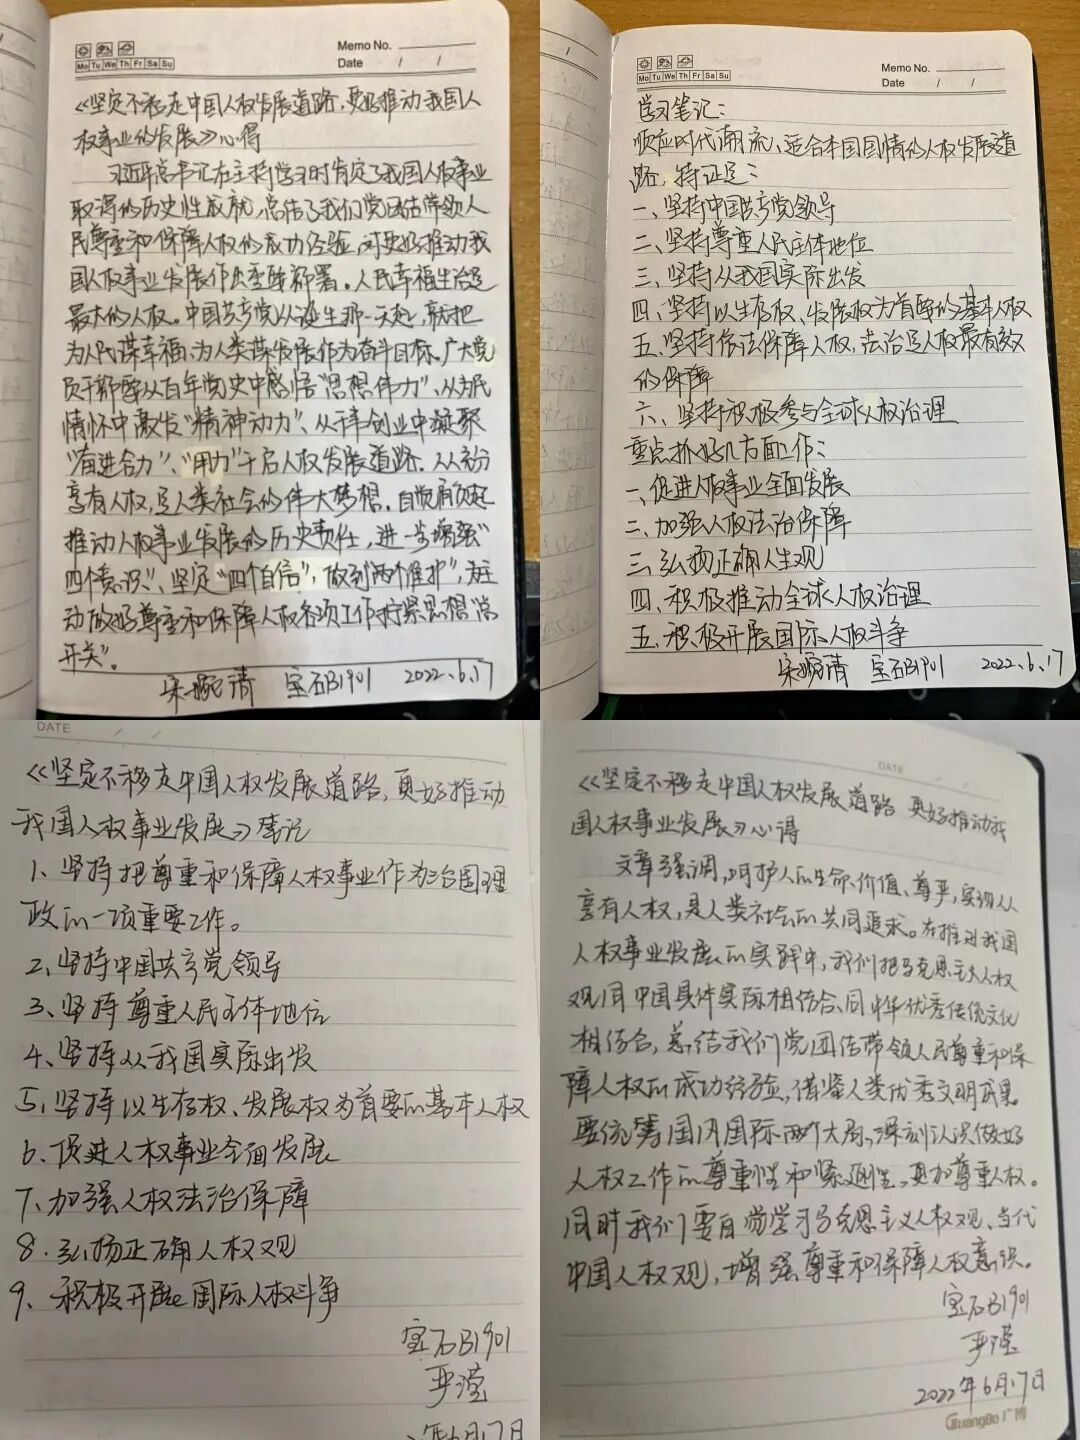 Memo No.
Mo Tu We Th Fr Sa Su
Date / /
《坚定不移走中国人权发展道路,更好推动我国人
权事业的发展》心得
习近平总书记在主持学习时肯定了我国人权事业
取得的历史性成就,总结了我们党团结带领人
民尊重和保障人权的成功经验,对更好推动我
国人权事业发展作出重要部署。人民幸福生活是
最大的人权。中国共产党从诞生那一天起,就把
为人民谋幸福、为人类谋发展作为奋斗目标。广大党
员干部要从百年党史中感悟“思想伟力”、从为民
情怀中激发“精神动力”、从干事创业中凝聚
“奋进合力”、“用力”于启人权发展道路.人人充分
享有人权,是人类社会的伟大梦想.自觉肩负起
推动人权事业发展的历史责任,进一步增强“
四个意识”、坚定“四个自信”,做到“两个维护”,主
动做好尊重和保障人权各项工作拧紧思想“总
开关”。
宋婉清 宝石B1901 2022.6.17
Memo No.
Mo Tu We Th Fr Sa Su
Date / /
学习笔记:
顺应时代潮流、适合本国国情的人权发展道
路,特征是:
一、坚持中国共产党领导
二、坚持尊重人民主体地位
三、坚持从我国实际出发
四、坚持以生存权、发展权为首要的基本人权
五、坚持依法保障人权,法治是人权最有效
的保障
六、坚持积极参与全球人权治理
重点抓好几方面工作:
一、促进人权事业全面发展
二、加强人权法治保障
三、弘扬正确人生观
四、积极推动全球人权治理
五、积极开展国际人权斗争
宋婉清 宝石B1901 2022.6.17
DATE / /
《坚定不移走中国人权发展道路,更好推动
我国人权事业发展》笔记
1、坚持把尊重和保障人权事业作为治国理
政的一项重要工作。
2、坚持中国共产党领导
3、坚持尊重人民主体地位
4、坚持从我国实际出发
5、坚持以生存权、发展权为首要的基本人权
6、促进人权事业全面发展
7、加强人权法治保障
8、弘扬正确人权观
9、积极开展国际人权斗争
宝石B1901
严滢
年6月17日
DATE / /
《坚定不移走中国人权发展道路 更好推动我
国人权事业发展》心得
文章强调,呵护人的生命、价值、尊严,实现人人
享有人权,是人类社会的共同追求。在推进我国
人权事业发展的实践中,我们把马克思主义人权
观同中国具体实际相结合、同中华优秀传统文化
相结合,总结我们党团结带领人民尊重和保
障人权的成功经验,借鉴人类优秀文明成果。
要统筹国内国际两个大局,深刻认识做好
人权工作的尊重性和紧迫性,更加尊重人权。
同时我们要自觉学习马克思主义人权观、当代
中国人权观,增强尊重和保障人权意识。
宝石B1901
严滢
2022年6月17日
GuangBo 广博